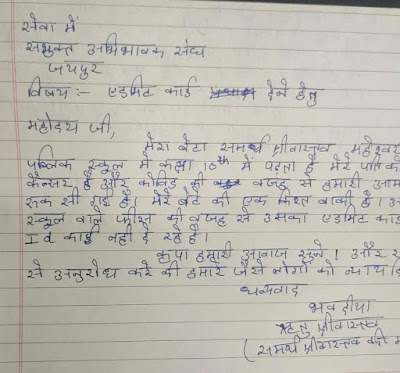 सेवा में
संयुक्त अभिभावक संघ
जयपुर
विषय :- एडमिट कार्ड देने हेतु
महोदय जी,
मेरा बेटा समर्थ श्रीवास्तव महेश्वर
पब्लिक स्कूल में कक्षा 10th में पढ़ता है मेरे पति को
कैन्सर है और कोविड की वजह से हमारी आम
रुक सी गई है। मेरे बेटे की एक किश्त बाकी है।
स्कूल वाले फीस की वजह से उसका एडमिट कार्ड
Id कार्ड नही दे रहे है।
कृपा हमारी आवाज सुने। और स्
से अनुरोध करे की हमारे जैसे लोगो को न्याय दि
धन्यवाद
भवदीया
श्रीवास्तव
(समर्थ श्रीवास्तव की म